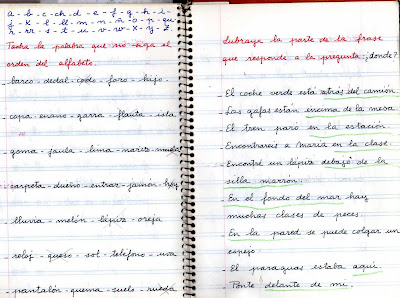 a - b - c - ch - d - e - f - g - h - i -
j - k - l - ll - m - n - ñ - o - p - qu
r - rr - s - t - u - v - w - x - y - z
Tacha la palabra que no siga el
orden del alfabeto.
- barco - dedal - codo - faro - hijo
copa - enano - garra - flauta - isla
goma - jaula - lima - nariz - muela
carpeta - dueño - entrar - jamón - hoy
lluvia - melón - lápiz - oreja
reloj - queso - sol - teléfono - uva
- pantalón - quema - suelo - rueda
Subraya la parte de la frase
que responde a la pregunta ¿donde?
- El coche verde está detrás del camión.
- Las gafas están encima de la mesa
- El tren paró en la estación.
- Encontrareis a María en la clase.
- Encontré un lápiz debajo de la
silla marrón.
- En el fondo del mar hay
muchas clases de peces.
- En la pared se puede colgar un
espejo.
- El paraguas estaba aquí.
- Ponte delante de mi.